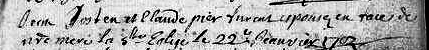 Jean Josten et Claude pier furent epousez en face de
nre mere la Ste Eglise le 22e Janvier 1702